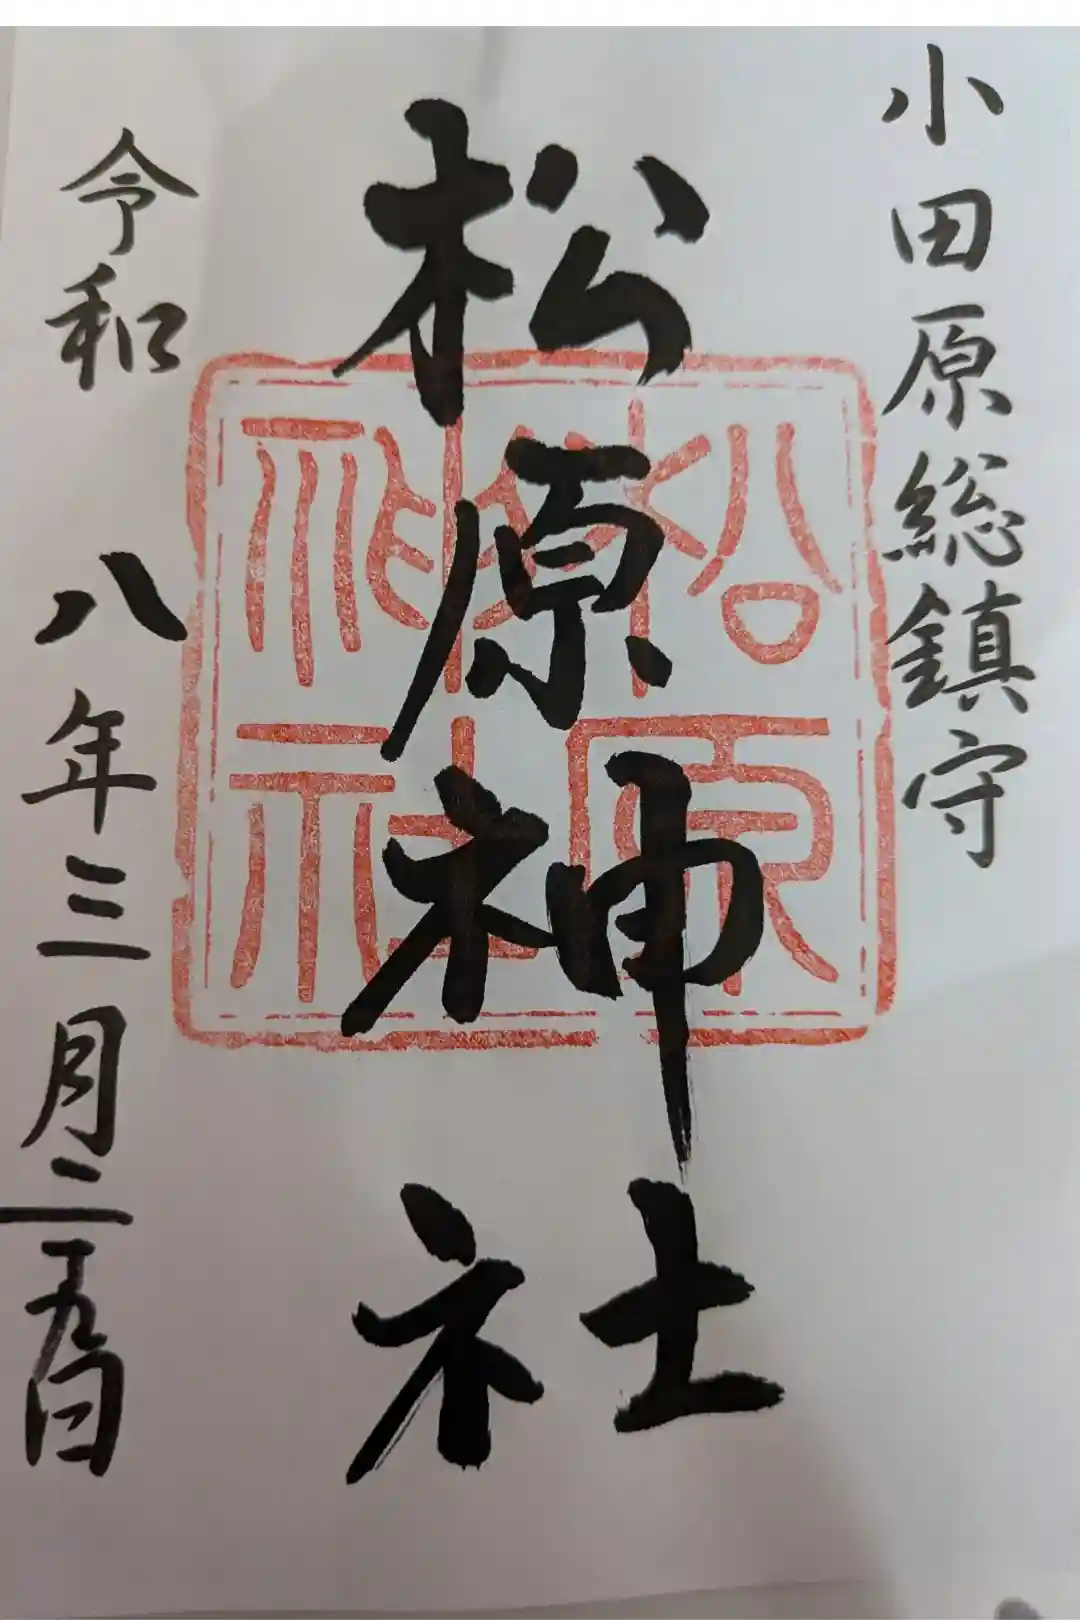 小田原総鎮守
松原神社
松原
神社
令和 八年三月二日